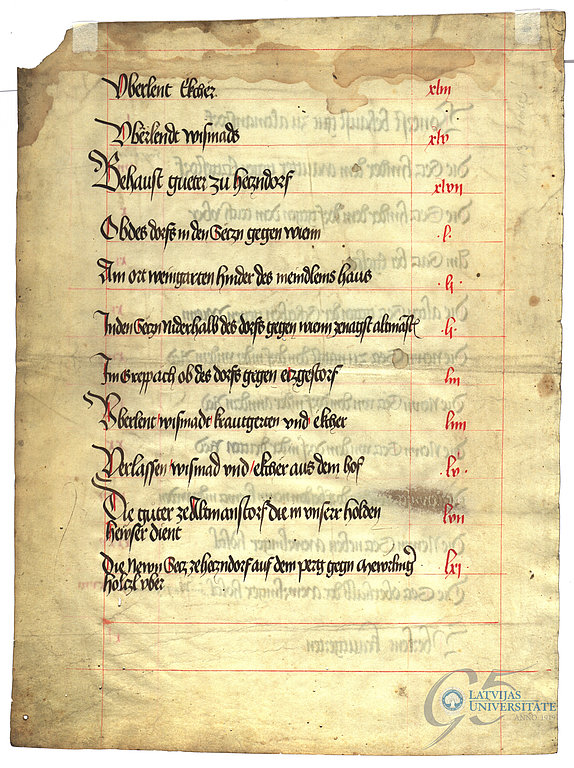 Vberlent Ekher xliii
Vberlendt wismads xlv
Behaust gueter zu herzndorf xlvii
Ob des dorfs in den Seczn gegen wienn ·l·
Am ort weingarten hinder des mendleins haus ·li·
In den Seczn Niderhalb des dorfs gegen wienn zenagst ·li·
Im Greppach ob des dorfs gegen eczgestorf liii
Vberlent wismadt krautgerten vnd ekher liiii
Verlassen wismad vnd ekher aus dem hof ·lv·
Die gueter ze Altmanstorf die in vnserr holden lvii
hewser dient
Die Newn Secz ze herzndorf auf dem perg gegn lxi
holczl vber
LATVIJAS
UNIVERSITĀTE
ANNO 1919